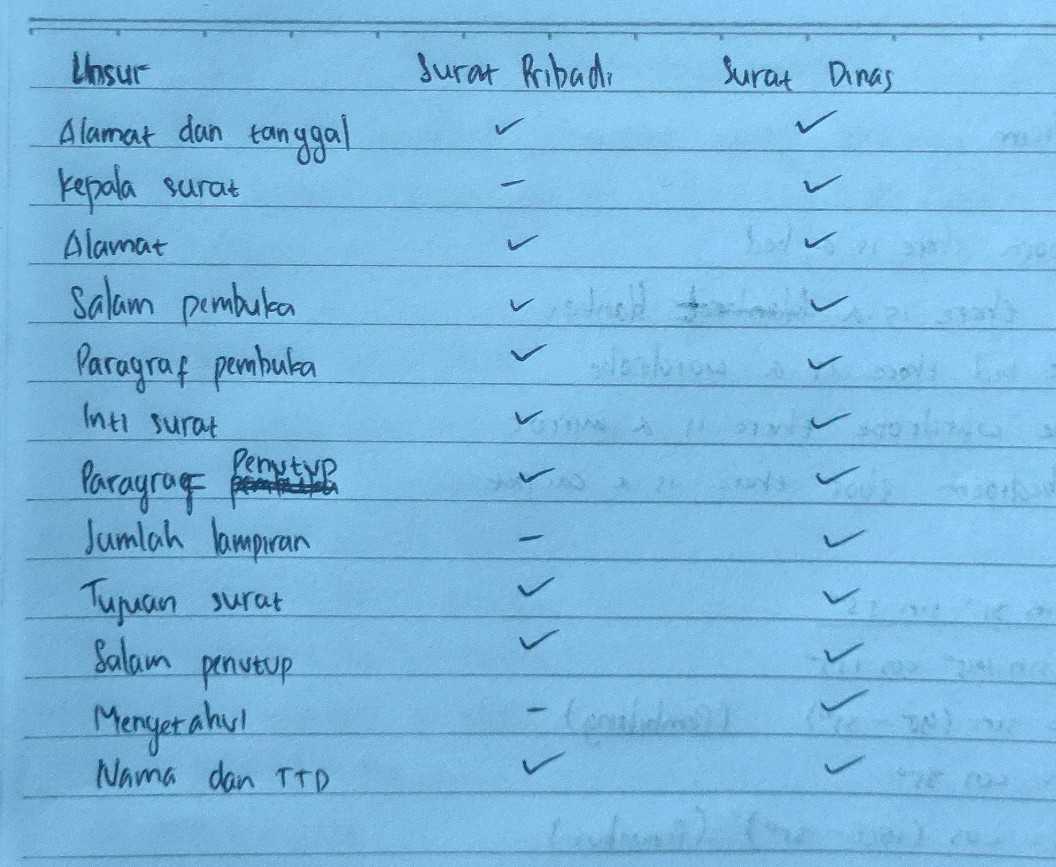 Unsur Surat Pribadi Surat Dinas
Alamat dan tanggal ✓ ✓
Kepala surat – ✓
Alamat ✓ ✓
Salam pembuka ✓ ✓
Paragraf pembuka ✓ ✓
Inti surat ✓ ✓
Paragraf Penutup ✓ ✓
Jumlah lampiran – ✓
Tujuan surat ✓ ✓
Salam penutup ✓ ✓
Mengetahui – ✓
Nama dan TTD ✓ ✓